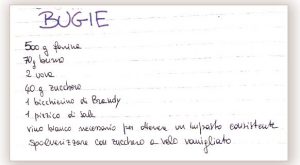 BUGIE
500 g farina
70g burro
2 uova
40 g zucchero
1 bicchierino di Brandy
1 pizzico di sale
vino bianco necessario per ottenere un impasto consistente
spolverizzare con zucchero a velo vanigliato